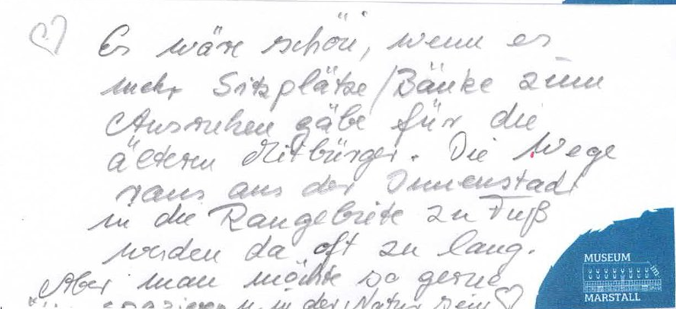 Es wäre schön, wenn es
mehr Sitzplätze/Bänke zum
Ausruhen gäbe für die
älteren Mitbürger. Die Wege
raus aus der Innenstadt
in die Randgebiete zu Fuß
werden da oft zu lang.
Aber man möchte so gerne
spazieren u. in der Natur sein
MUSEUM
MARSTALL